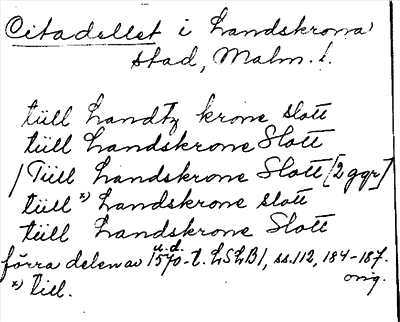 Citadellet i Landskrona
stad, Malm. l.
tüll Landtz krone slott
tüll Landskrone Slott
/ Tüll Landskrone Slott [2 ggr]
tüll *) Landskrone slott
tüll Landskrone Slott
u.d.
förra delen av 1570-t. LSLB1, ss. 112, 184-187.
orig.
*) till.